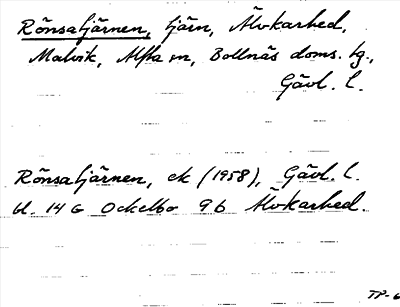 Rönsatjärnen, tjärn, Älvkarhed,
Malvik, Alfta sn, Bollnäs doms. tg.,
Gävl. l.
Rönsatjärnen, ek (1958), Gävl. l.
bl. 14 G Ockelbo 9b Älvkarhed.
TP-6